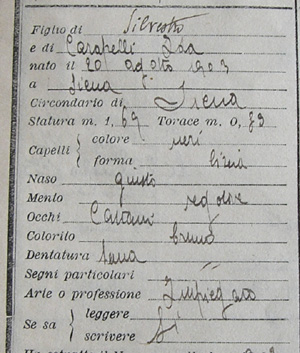 Figlio di Silvestro
e di Carapelli Ida
nato il 20 agosto 1903
a Siena
Circondario di Siena
Statura m. 1, 69 Torace m. 0, 89
Capelli { colore neri
forma lisia
Naso giusto
Mento regolare
Occhi Castani
Colorito bruno
Dentatura sana
Segni particolari
Arte o professione Impiegato
Se sa { leggere
scrivere Si